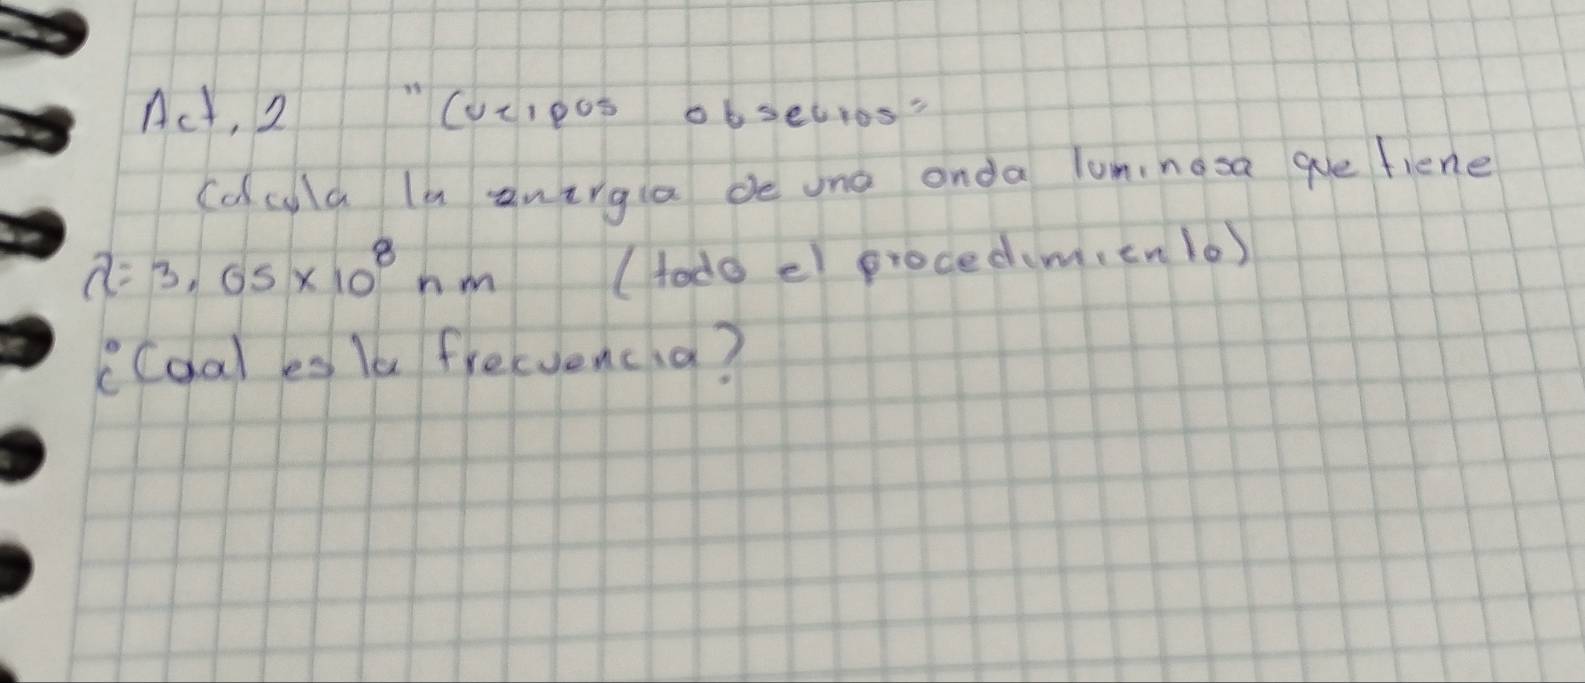 Act, 2 "Cuerpos obscuros"
Calcula la energia de una onda luminosa que tiene
λ= 3,05 x 10⁸ nm (todo el procedimiento)
¿Cual es la frecuencia?